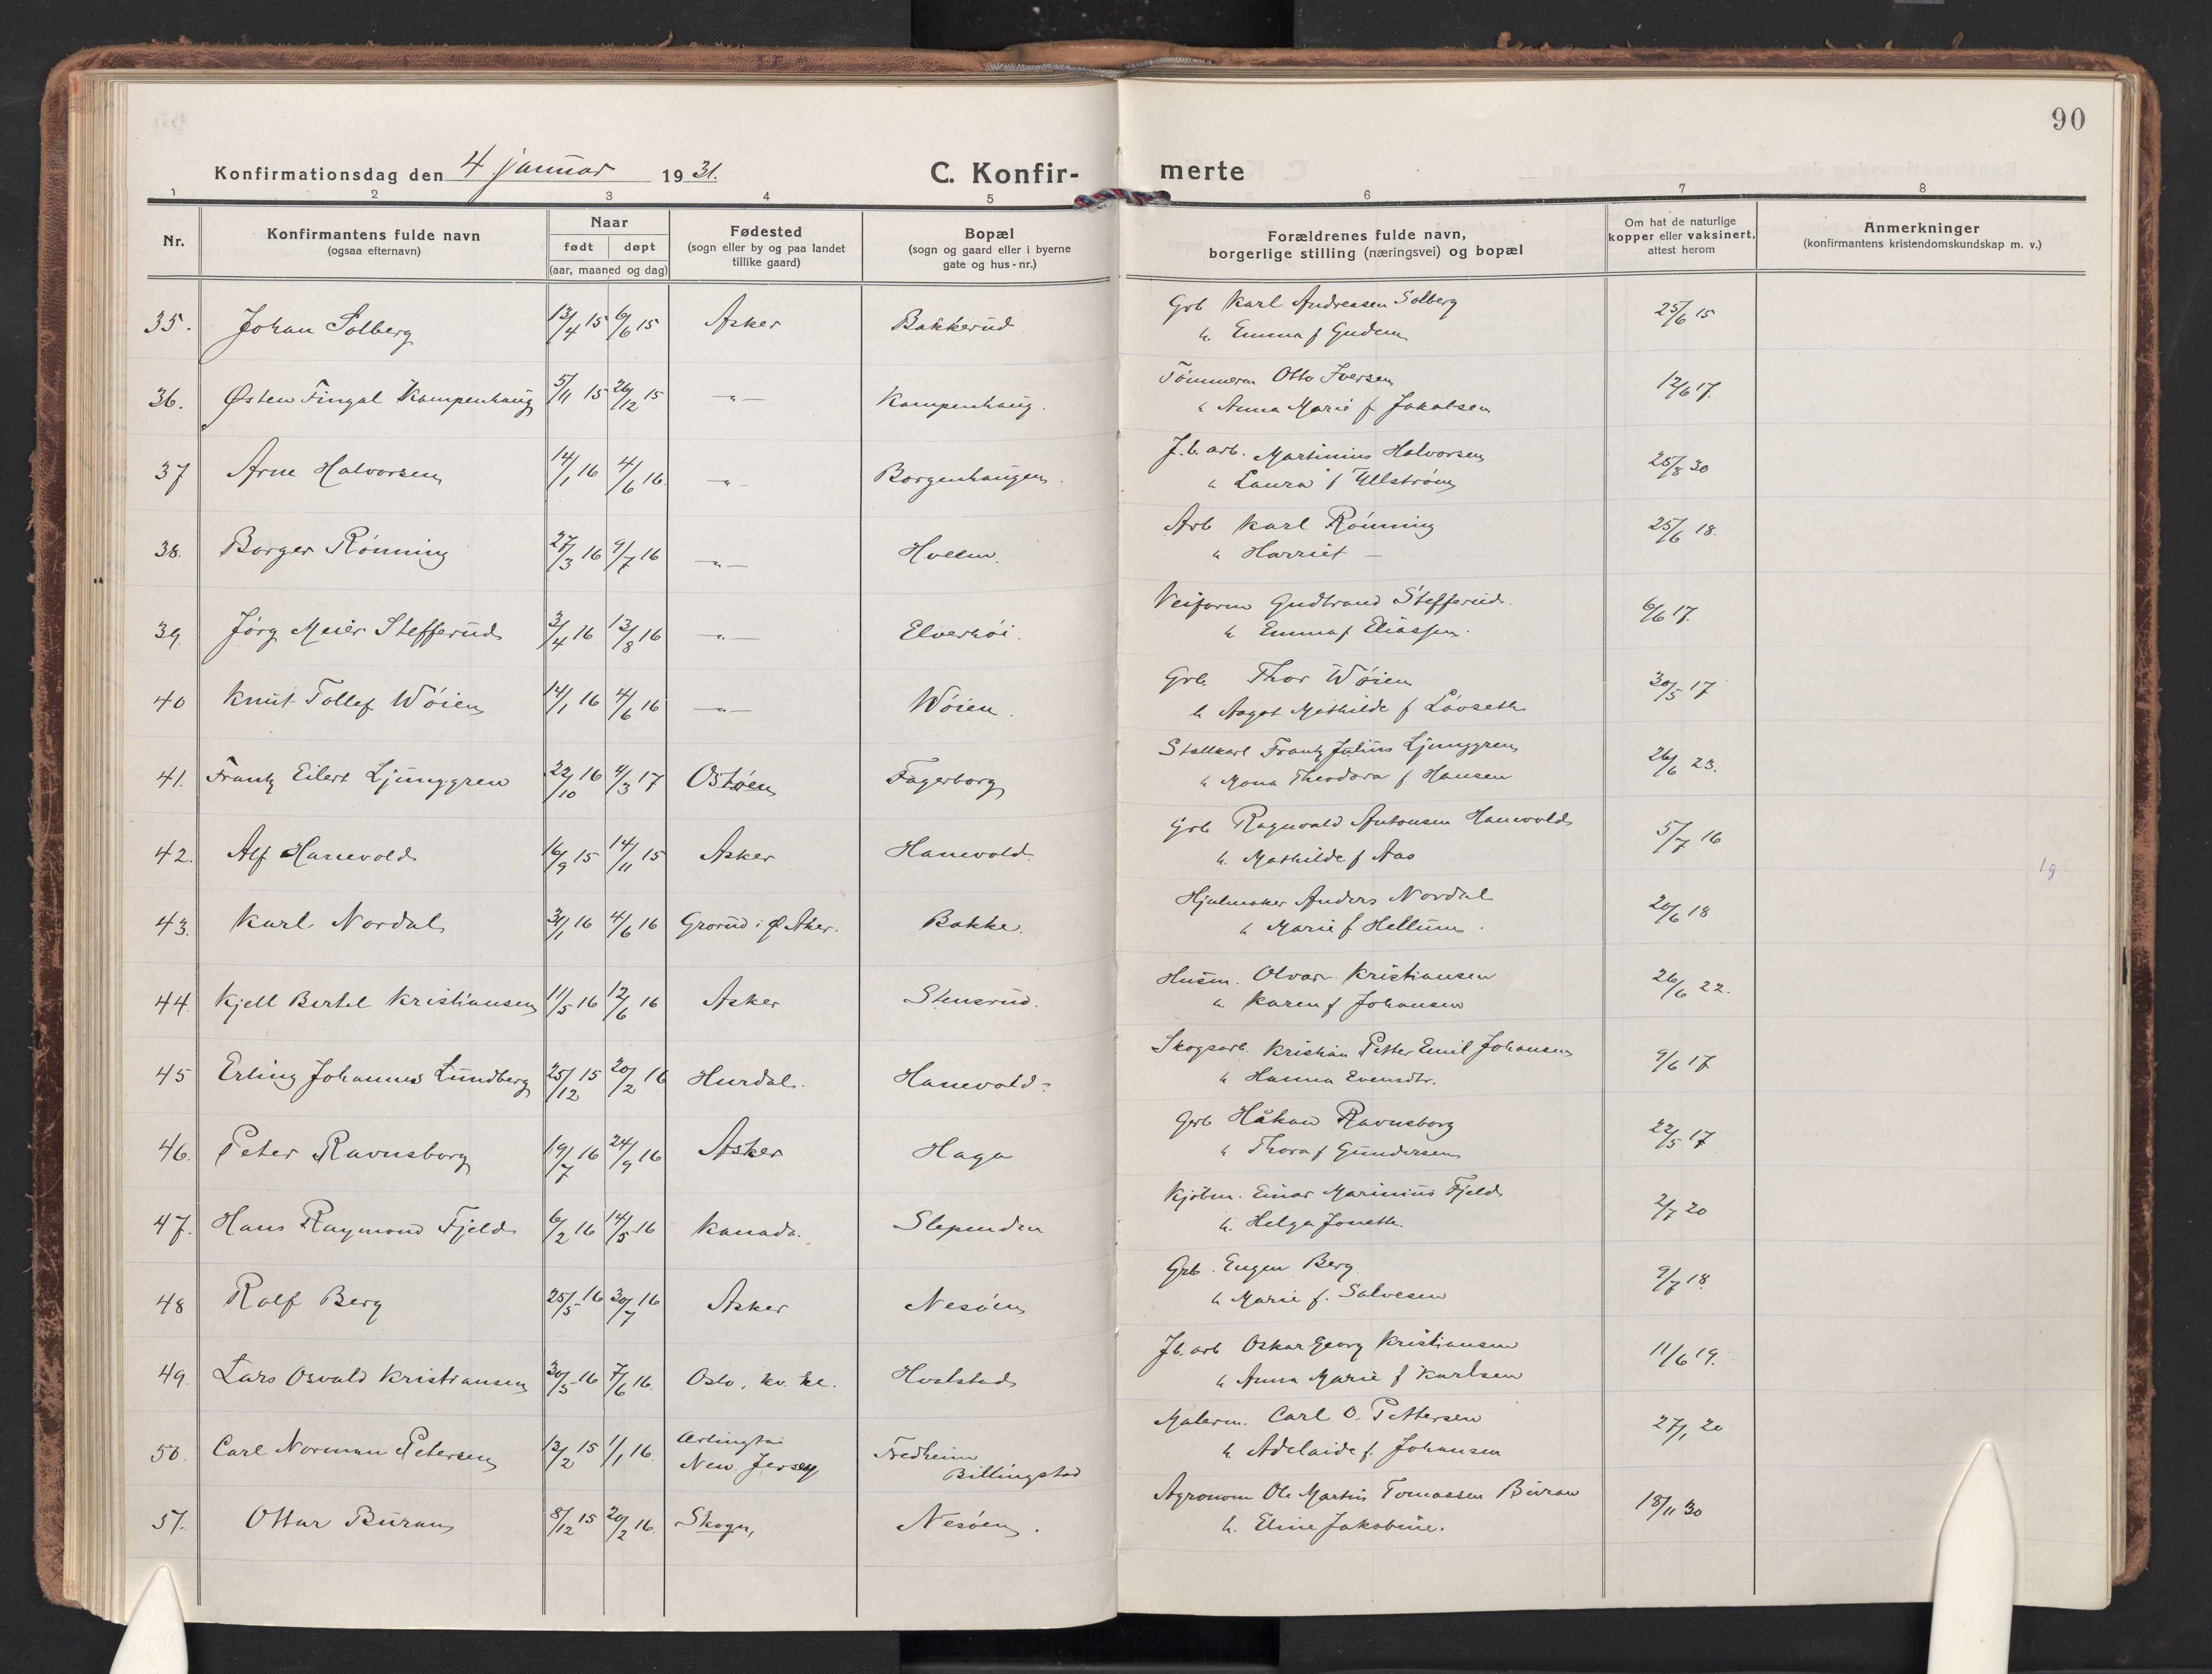 90
Konfirmationsdag den 4 januar 1931.
C. Konfirmerte
1 2 3 4 5 6 7 8
Nr.
Konfirmantens fulde navn
(ogsaa efternavn)
Naar
født døpt
(aar, maaned og dag)
Fødested
(sogn eller by og paa landet
tillike gaard)
Bopæl
(sogn og gaard eller i byerne
gate og hus-nr.)
Forældrenes fulde navn,
borgerlige stilling (næringsvei) og bopæl
Om hat de naturlige
kopper eller vaksinert,
attest herom
Anmerkninger
(konfirmantens kristendomskundskap m. v.)
35. Johan Solberg 13/4 15 6/6 15 Asker Bakkerud Grb Karl Andreasen Solberg 25/6 15
h. Emma f Gudem
36. Østen Fingal Kampenhaug 5/11 15 26/12 15 —"— Kampenhaug. Tömmerm Otto Iversen 12/6 17.
" Anna Marie f Jakobsen
37 Arne Halvorsen 14/1 16 4/6 16. —"— Borgenhaugen. J.b. arb. Martinius Halvorsen 25/8 30
" Laura f Ullström
38. Borger Rönning 27/3 16 9/7 16 —"— Hvelm. Arb Karl Rönning 25/6 18.
" Harriet —
39. Jörg Meier Stefferud 3/4 16 13/8 16 —"— Elverhöi. Veiform Gudbrand Stefferud. 6/6 17.
h Emma f Eliassen.
40 Knut Tollef Wöien 14/1 16 4/6 16 —"— Wöien. Grb. Thor Wöien 30/5 17
h Aagot Mathilde f Lövseth
41. Frantz Eilert Ljunggren 22/10 16 4/3 17 Ostöen Fagerborg Stallkarl Frantz Julius Ljunggren 26/6 23.
h Mona Theodora f Hansen
42. Alf Hanevold 16/9 15 14/11 15 Asker Hanevold Grb Ragnvald Antonsen Hanevold 5/7 16
h. Mathilde f Aas
19
43. Karl Nordal 31/1 16 4/6 16 Grorud i Ø. Aker. Bakke. Hjulmaker Anders Nordal 20/6 18
h Marie f Hellum.
44. Kjell Bertel Kristiansen 11/5 16 12/6 16 Asker Stensrud. Husm. Olvar Kristiansen 26/6 22.
h. Karen f Johansen
45 Erling Johannes Lundberg 25/12 15 20/2 16 Hurdal. Hanevold. Skogsarb. Kristian Petter Emil Johansen 9/6 17
h Hanna Evensdtr.
46. Peter Ravnsborg 19/7 16 24/9 16 Asker Haga Grb Håkon Ravnsborg 22/5 17
h Thora f Gundersen
47. Hans Raymond Fjeld 6/2 16 14/5 16 Kanada. Slependen Kjöbm. Einar Marinius Fjeld 2/7 20
h. Helga Joneth.
48 Rolf Berg 25/5 16 30/7 16 Asker Nesöen Grb. Eugen Berg 9/7 18.
h Marie f. Salvesen
49. Lars Osvald Kristiansen 30/5 16 7/6 16. Oslo, kv. kl. Hvalstad Jb. arb Oskar Georg Kristiansen 11/6 19.
h Anna Marie f Karlsen
50. Carl Norman Petersen 13/2 15 1/1 16. Arlington New. Jersey Fredheim Billingstad Malerm. Carl O. Pettersen 27/1 20
h Adelaide f. Johansen
51. Ottar Buran 8/12 15 20/2 16. Skogn, Nesöen. Agronom Ole Martin Tomassen Buran 18/11 30
h. Eline Jakobine.